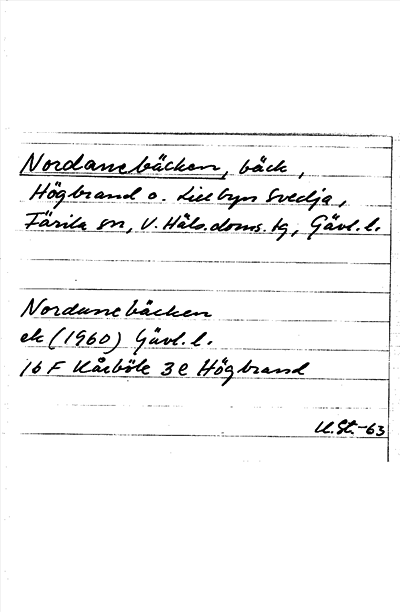 Nordannebäcken, bäck,
Högbrand o. Lillbyn Svedja,
Färila sn, V. Häls. doms. tg, Gävl. l.
Nordannebäcken
ek (1960) Gävl. l.
16 F Kårböle 3 e Högbrand
U.St.-63